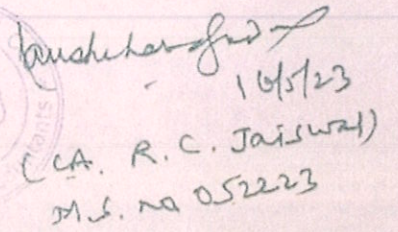 16/5/23
(CA. R. C. Jaiswal)
M.S. no 052223